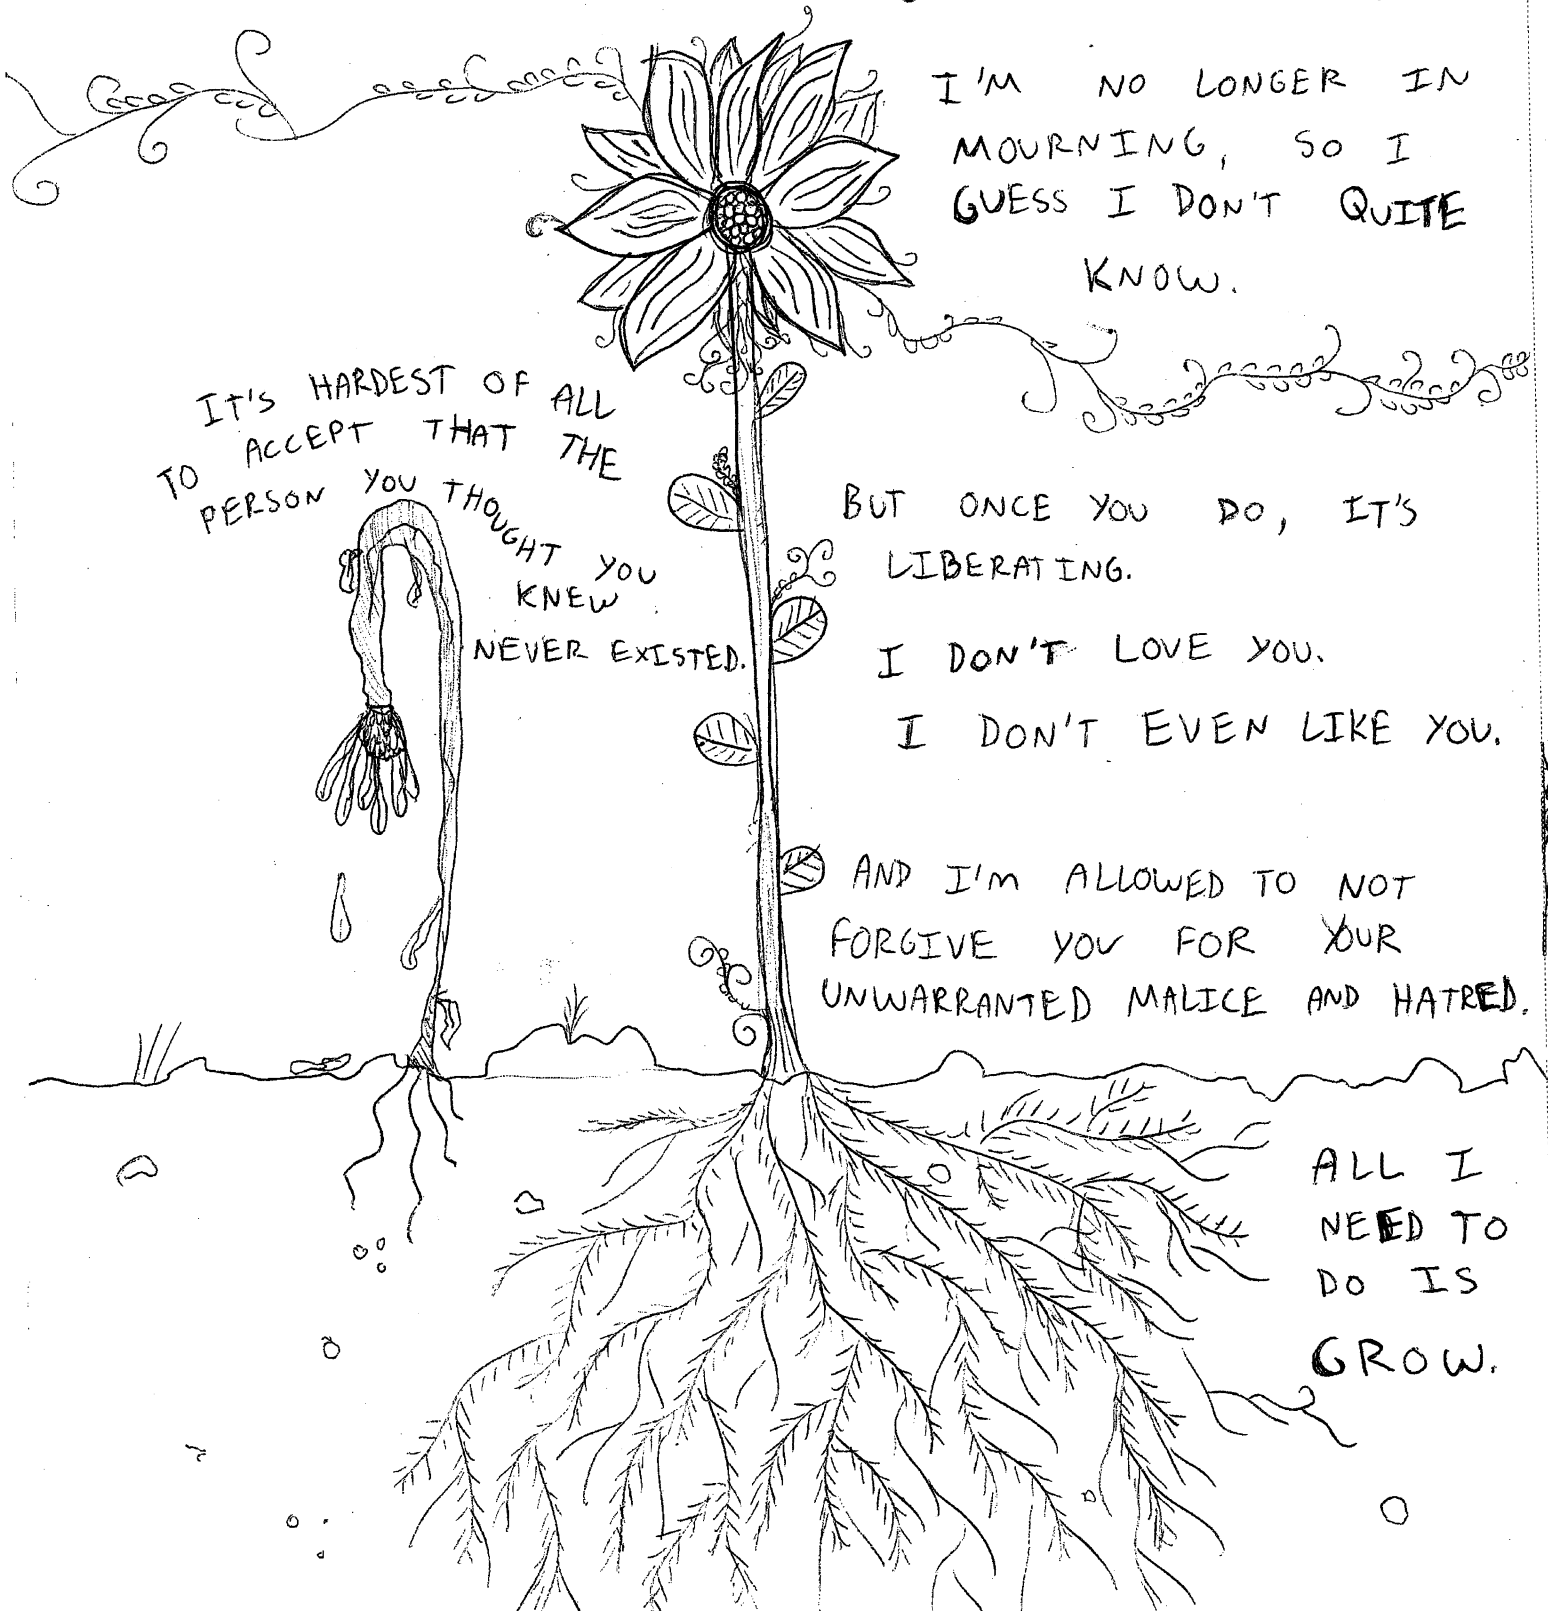 I'M NO LONGER IN
MOURNING, SO I
GUESS I DON'T QUITE
KNOW.
IT'S HARDEST OF ALL
TO ACCEPT THAT THE
PERSON YOU THOUGHT YOU
KNEW
NEVER EXISTED.
BUT ONCE YOU DO, IT'S
LIBERATING.
I DON'T LOVE YOU.
I DON'T EVEN LIKE YOU.
AND I'M ALLOWED TO NOT
FORGIVE YOU FOR YOUR
UNWARRANTED MALICE AND HATRED.
ALL I
NEED TO
DO IS
GROW.